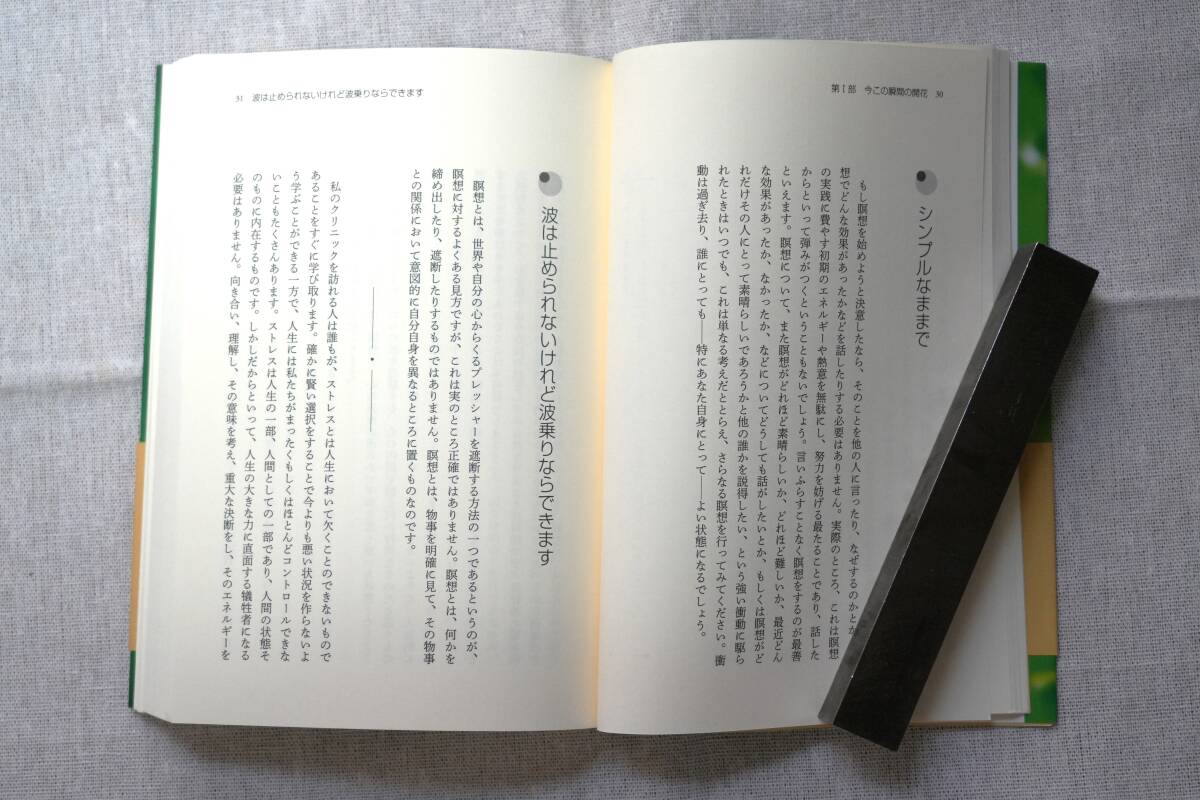 第Ⅰ部　今この瞬間の開花　30
シンプルなままで
もし瞑想を始めようと決意したなら、そのことを他の人に言ったり、なぜするのかとか
想でどんな効果があったかなどを話したりする必要はありません。実際のところ、これは瞑想
の実践に費やす初期のエネルギーや熱意を無駄にし、努力を妨げる最たることであり、話した
からといって弾みがつくということもないでしょう。言いふらすことなく瞑想をするのが最善
といえます。瞑想について、また瞑想がどれほど素晴らしいか、どれほど難しいか、最近どん
な効果があったか、なかったか、などについてどうしても話がしたいとか、もしくは瞑想がど
れだけその人にとって素晴らしいであろうかと他の誰かを説得したい、という強い衝動に駆ら
れたときはいつでも、これは単なる考えだととらえ、さらなる瞑想を行ってみてください。衝
動は過ぎ去り、誰にとっても——特にあなた自身にとって——よい状態になるでしょう。
31　波は止められないけれど波乗りならできます
波は止められないけれど波乗りならできます
瞑想とは、世界や自分の心からくるプレッシャーを遮断する方法の一つであるというのが、
瞑想に対するよくある見方ですが、これは実のところ正確ではありません。瞑想とは、何かを
締め出したり、遮断したりするものではありません。瞑想とは、物事を明確に見て、その物事
との関係において意図的に自分自身を異なるところに置くものなのです。
私のクリニックを訪れる人は誰もが、ストレスとは人生において欠くことのできないもので
あることをすぐに学び取ります。確かに賢い選択をすることで今よりも悪い状況を作らないよ
う学ぶことができる一方で、人生には私たちがまったくもしくはほとんどコントロールできな
いこともたくさんあります。ストレスは人生の一部、人間としての一部であり、人間の状態そ
のものに内在するものです。しかしだからといって、人生の大きな力に直面する犠牲者になる
必要はありません。向き合い、理解し、その意味を考え、重大な決断をし、そのエネルギーを